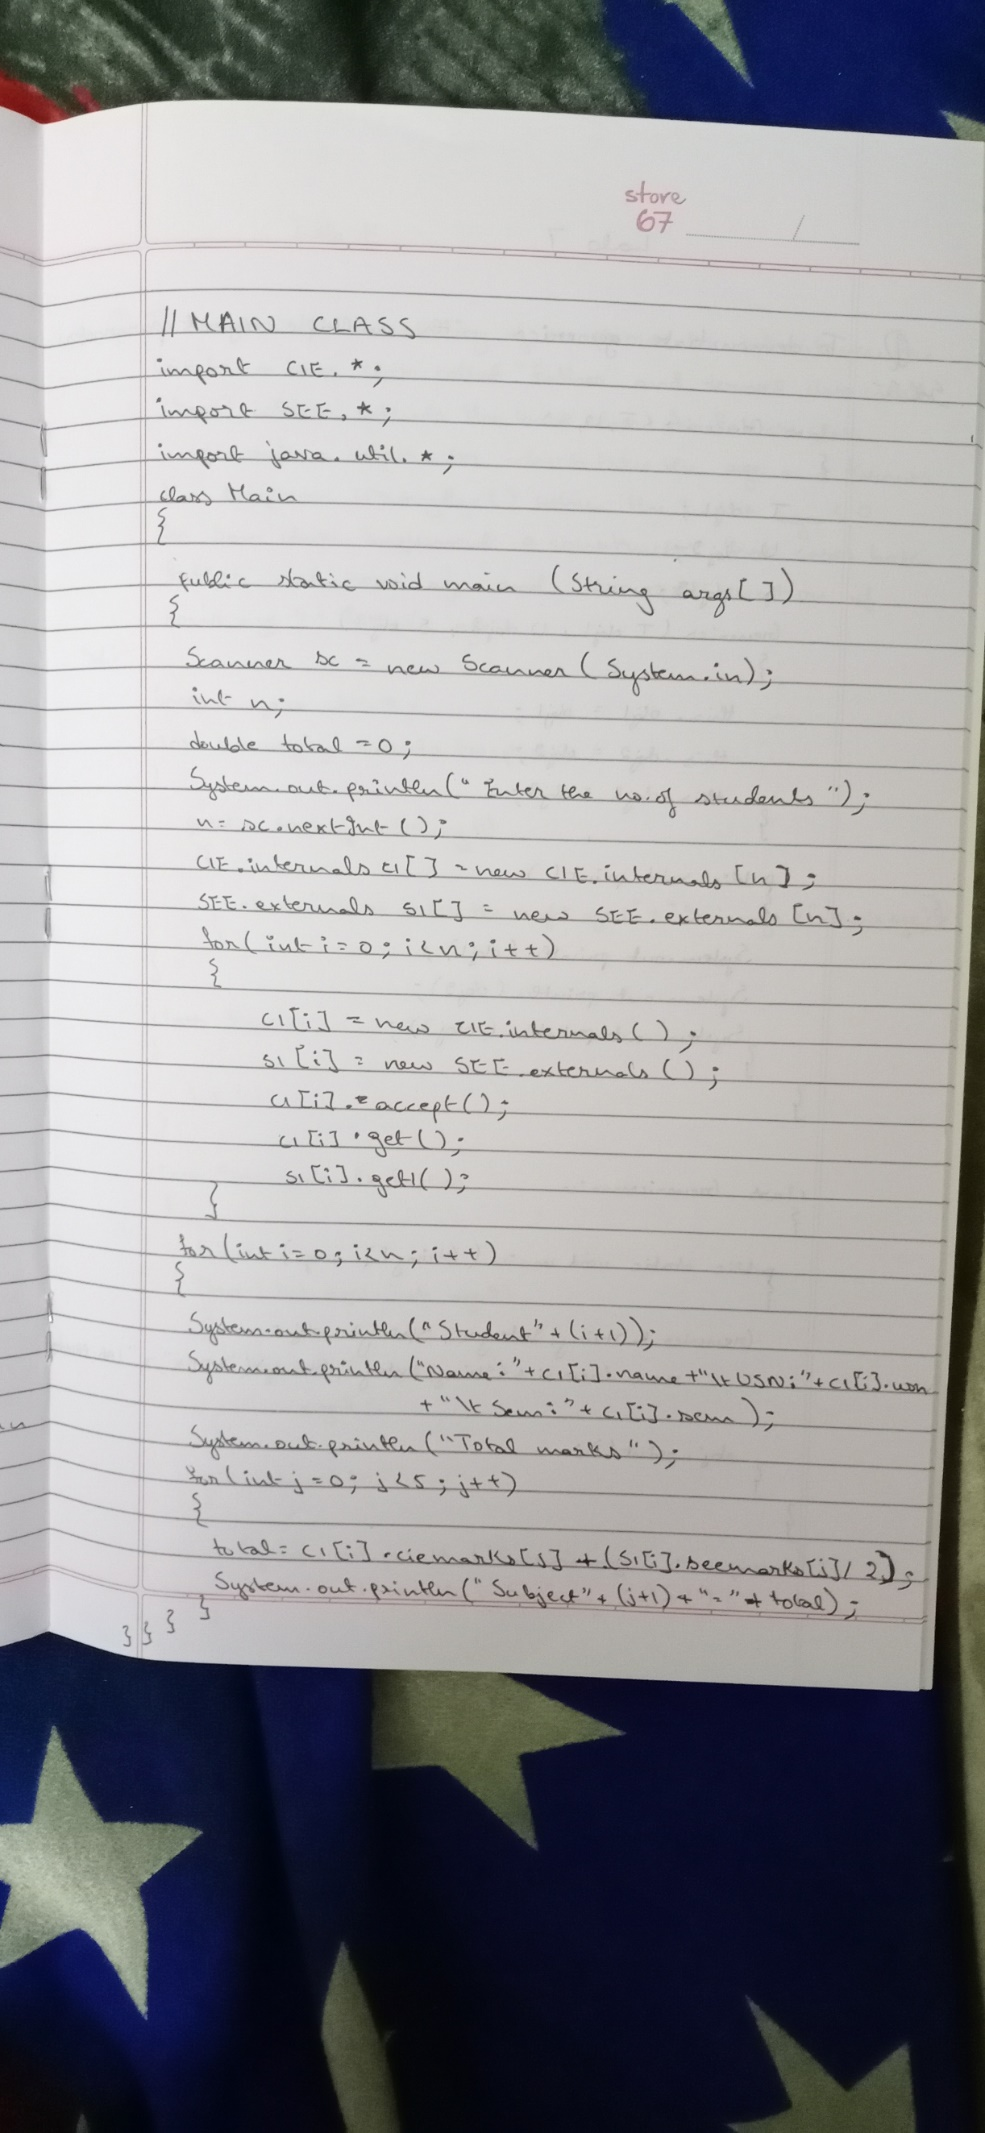 store
67 /
// MAIN CLASS
import CIE.*;
import SEE.*;
import java.util.*;
class Main
{
public static void main (String args[])
{
Scanner sc = new Scanner(System.in);
int n;
double total = 0;
System.out.println("Enter the no. of students");
n = sc.nextInt();
CIE.internals c1[] = new CIE.internals[n];
SEE.externals s1[] = new SEE.externals[n];
for(int i=0; i<n; i++)
{
c1[i] = new CIE.internals();
s1[i] = new SEE.externals();
c1[i].accept();
c1[i].get();
s1[i].get1();
}
for(int i=0; i<n; i++)
{
System.out.println("Student"+(i+1));
System.out.println("Name:"+c1[i].name+"\t USN:"+c1[i].usn
+"\t Sem:"+c1[i].sem);
System.out.println("Total marks");
for(int j=0; j<5; j++)
{
total = c1[i].ciemarks[j] + (s1[i].seemarks[j]/2);
System.out.println("Subject"+(j+1)+"="+total);
}
} } }